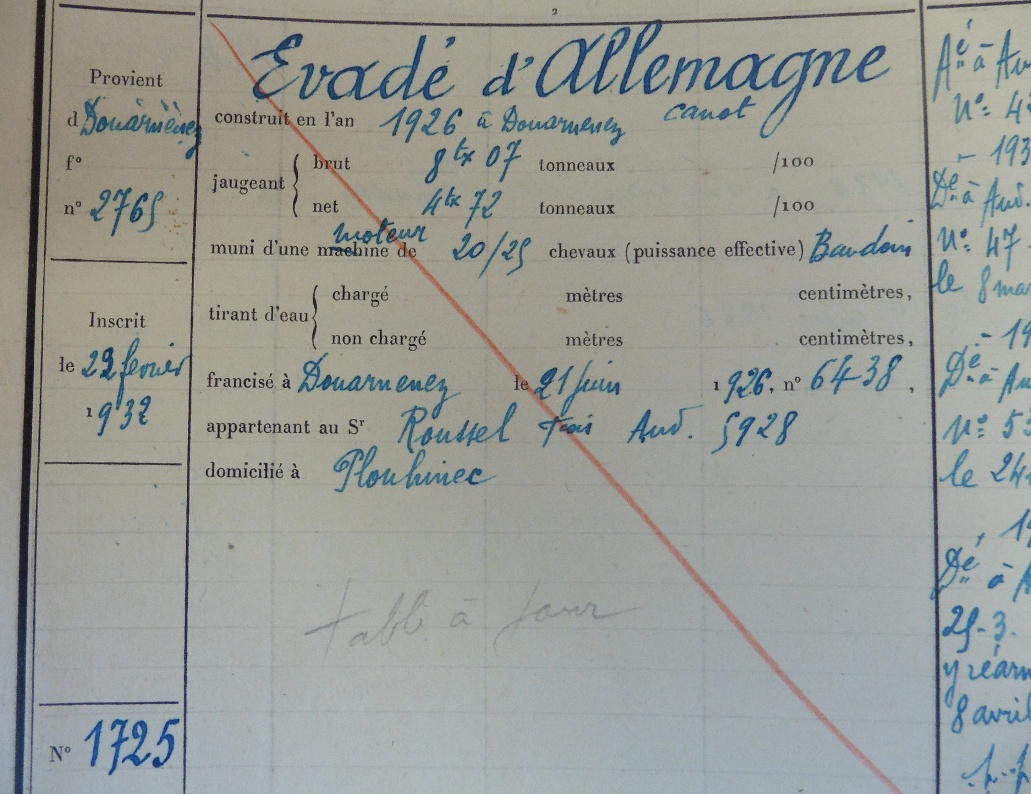 2
Provient
d Douarnenez
f°
n° 2765
Inscrit
le 22 fevrier
1932
N° 1725
Evadé d'Allemagne
construit en l'an 1926 à Douarnenez canot
jaugeant { brut 8tx 07 tonneaux /100
net 4tx 72 tonneaux /100
moteur
muni d'une machine de 20/25 chevaux (puissance effective) Baudoin
tirant d'eau { chargé mètres centimètres,
non chargé mètres centimètres,
francisé à Douarnenez le 21 Juin 1926, n° 6438,
appartenant au Sr Roussel Aud. 5928
domicilié à Plouhinec
table à jour
Aé à Au
N°= 4
- 193
Dé à Aud.
N°= 47
le 8 mar
- 19
Dé à Au
N°= 53
le 24
, 19
Dé à A
25-3.
y réarm
8 avril